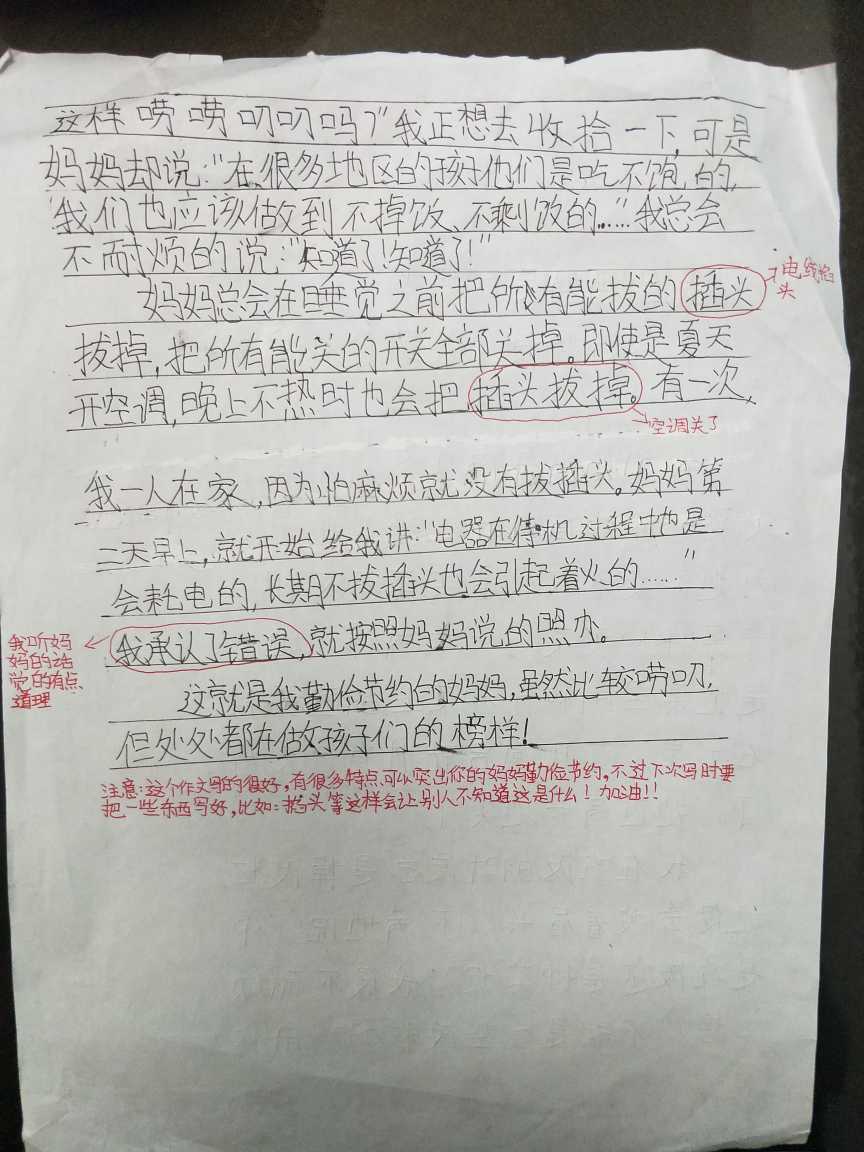 这样唠唠叨叨吗?"我正想去收拾一下,可是
妈妈却说:"在很多地区的孩子他们是吃不饱的,
我们也应该做到不掉饭、不剩饭的……"我总会
不耐烦的说:"知道了!知道了!"
妈妈总会在睡觉之前把所有能拔的插头
电线插头
拔掉,把所有能关的开关全部关掉。即使是夏天
开空调,晚上不热时也会把插头拔掉。有一次,
空调关了
我一人在家,因为怕麻烦就没有拔插头。妈妈第
二天早上,就开始给我讲:"电器在待机过程中也是
会耗电的,长期不拔插头也会引起着火的……"
我承认了错误,就按照妈妈说的照办。
我听妈
妈的话
觉的有点
道理
这就是我勤俭节约的妈妈,虽然比较唠叨,
但处处都在做孩子们的榜样!
注意:这个作文写的很好,有很多特点可以突出你的妈妈勤俭节约,不过下次写时要
把一些东西写好,比如:插头等这样会让别人不知道这是什么!加油!!